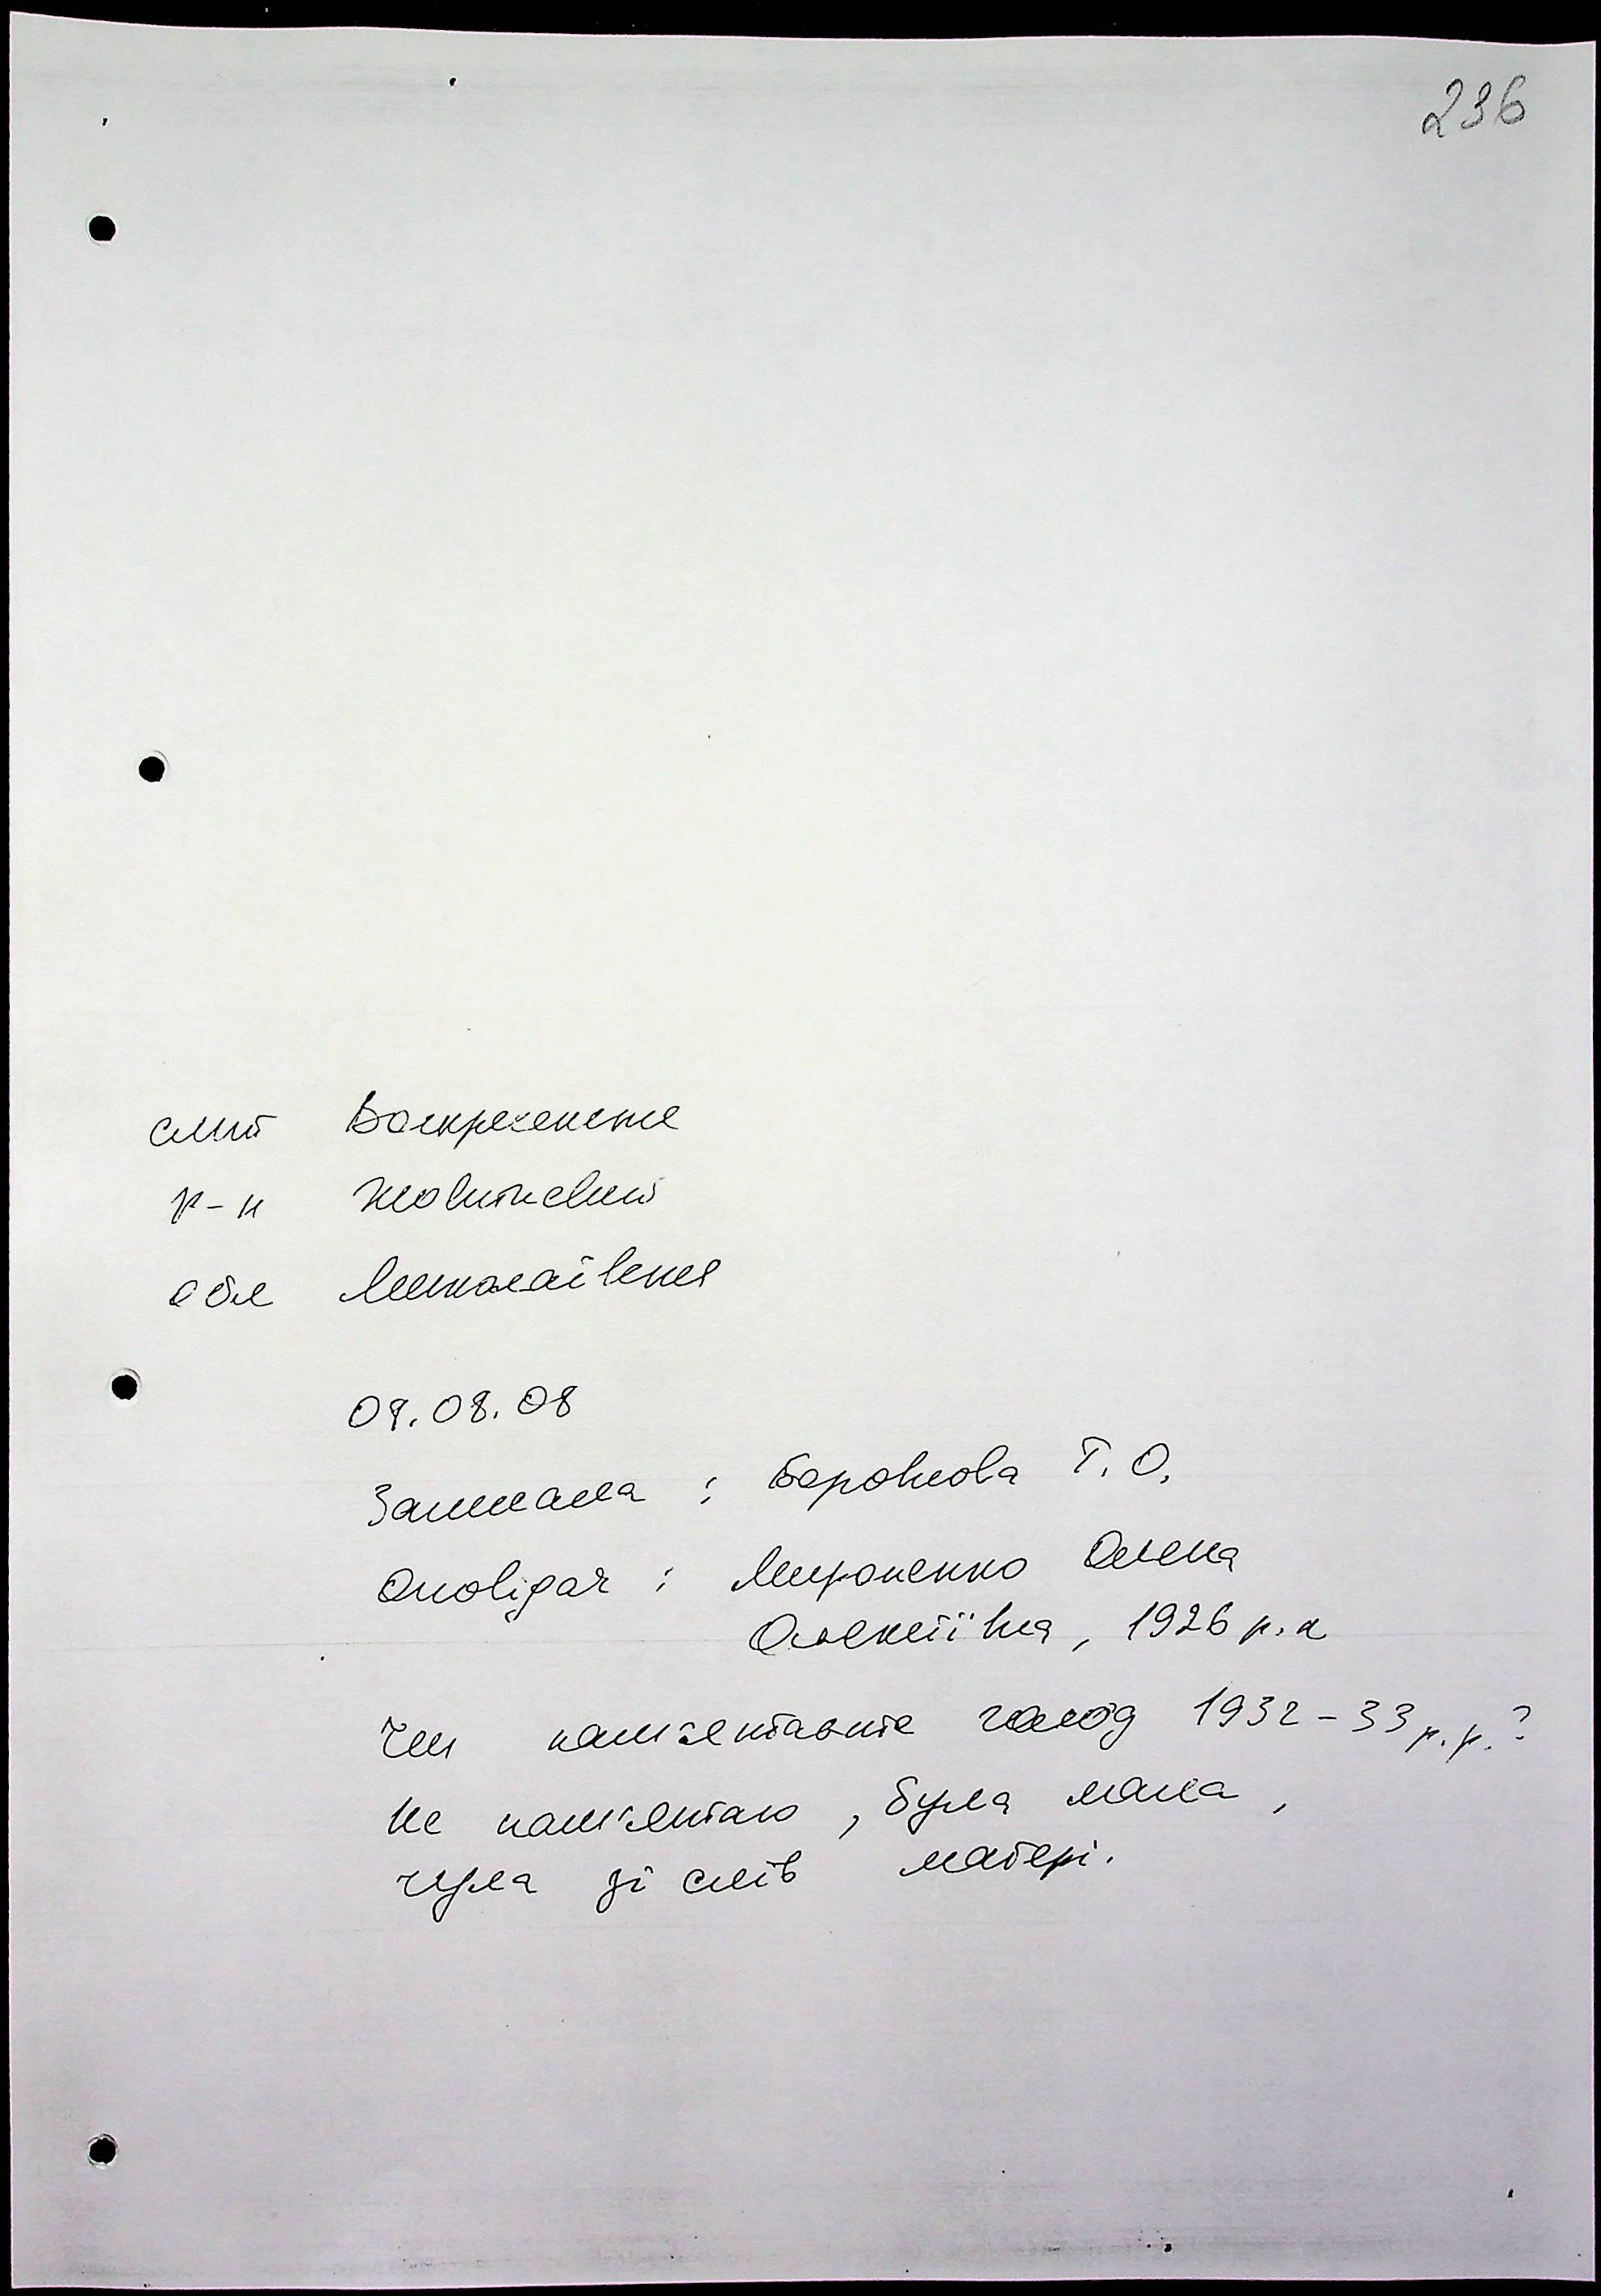 236
смт Воскресенське
р-н Жовтневий
обл Миколаївська
09.08.08
Записала : Боровкова Т. О.
Оповідач : Мироненко Олена
Олексіївна, 1926 р.н
Чи пам'ятаєте голод 1932-33 р.р.?
Не пам'ятаю, була мала,
чула зі слів матері.